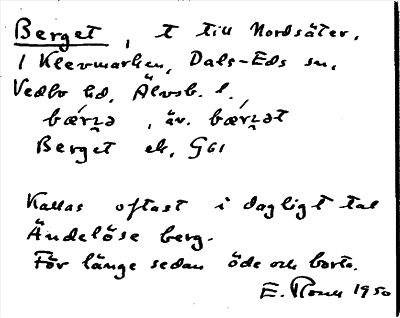 Berget, t till Nordsäter,
1 Klevmarken, Dals-Eds sn,
Vedbo hd, Älvsb. l.
bærʒə, äv. bærʒət
Berget ek, G61
Kallas oftast i dagligt tal
Ändelöse berg.
För länge sedan öde och borta.
E. 1950